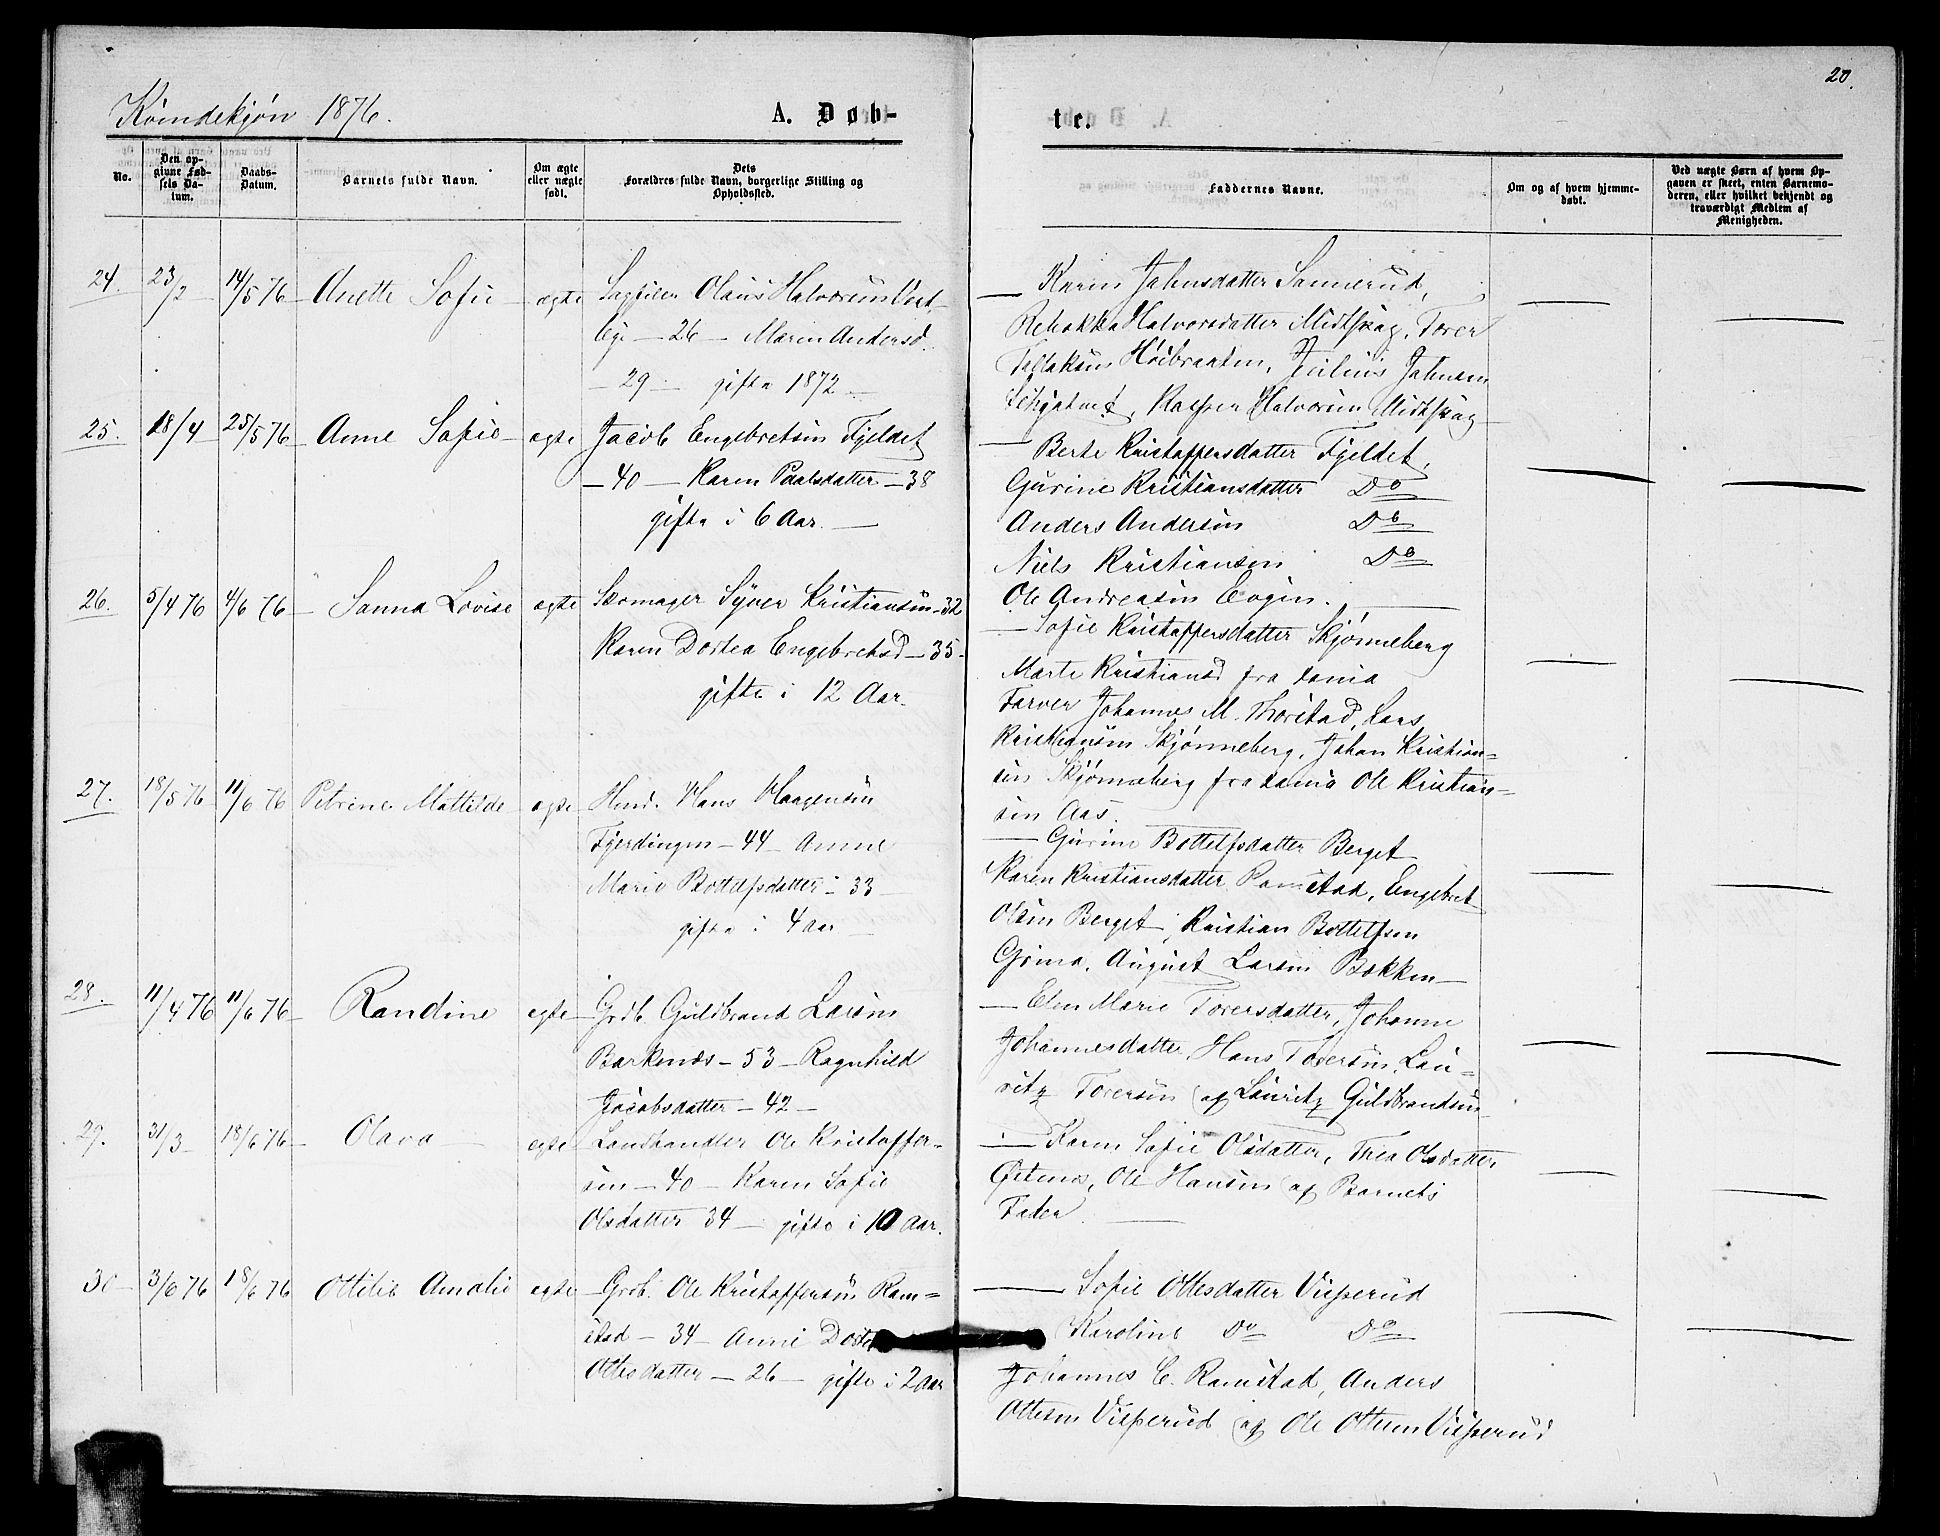 20.
Kvindekjøn 1876.
A. Døb-
te.
No.
Den op-
givne Fød-
sels Da-
tum.
Daabs-
Datum.
Barnets fulde Navn.
Om ægte
eller uægte
født.
Dets
Forældres fulde Navn, borgerlige Stilling og
Opholdssted.
Faddernes Navne.
Om og af hvem hjemme-
døbt.
Ved uægte Børn af hvem Op-
gaven er skeet, enten Barnemo-
deren, eller hvilket bekjendt og
troværdigt Medlem af
Menigheden.
24. 23/2 14/5 76 Anette Sofie ægte
Olaus Halvorsen
- 26 - Maren Andersd.
- 29 - gifte 1872 -
Karen Johnsdatter Sannerud,
Rebekka Halvorsdatter Midtskog, Torer
Høibraaten, Julius Johnsen
Halvorsen Midtskog
25. 18/4 25/5 76 Anne Sofie ægte
Jacob Engebretsen Fjeldet
- 40 - Karen Paalsdatter - 38
gifte i 6 Aar. -
Berte Kristoffersdatter Fjeldet,
Gurine Kristiansdatter Do
Anders Andersen Do
Niels Kristiansen Do
Ole Andreasen
26. 5/4 76 4/6 76 Sanna Lovise ægte
Skomager Syver Kristiansen - 32
Karen Dortea Engebretsd - 35 -
gifte i 12 Aar.
Sofie Kristoffersdatter Skjønneberg
Marte Kristiansd fra
Farver Johannes M. Thorstad, Lars
Kristiansen Skjønneberg, Johan Kristian-
sen Skjønneberg fra Ole Kristian-
sen Aas.
27. 18/5 76 11/6 76 Petrine Mathilde ægte
Hans Haagensen
Fjerdingen - 44 - Anne
Marie Bottelfsdatter - 33 -
gifte i 4 Aar -
Gurine Bottelfsdatter Berget
Karen Kristiansdatter Ramstad, Engebret
Olsen Berget, Kristian Bottelfsen
August Larsen Bakken -
28. 11/4 76 11/6 76 Randine ægte
Grdb. Guldbrand Larsen
Barkenæs - 53 - Ragnhild
Jacobsdatter - 42 -
Elen Marie Torersdatter, Johanne
Johannesdatter, Hans Torersen, Lau-
ritz Torersen og Lauritz Guldbrandsen
29. 31/3 18/6 76 Olava ægte
Landhandler Ole Kristoffer-
sen - 40 - Karen Sofie
Olsdatter 34 - gifte i 10 Aar.
Karen Sofie Olsdatter, Thea Olsdatter
Ole Hansen og Barnets
Fader
30 3/6 76 18/6 76 Ottilie Amalie ægte
Grdb. Ole Kristoffersen Ram-
stad - 34 - Anne
Ottesdatter - 26 - gifte i 2 Aar
Sofie Ottesdatter Visperud
Karoline Do Do
Johannes C. Ramstad, Anders
Ottesen Visperud og Ole Ottesen Visperud